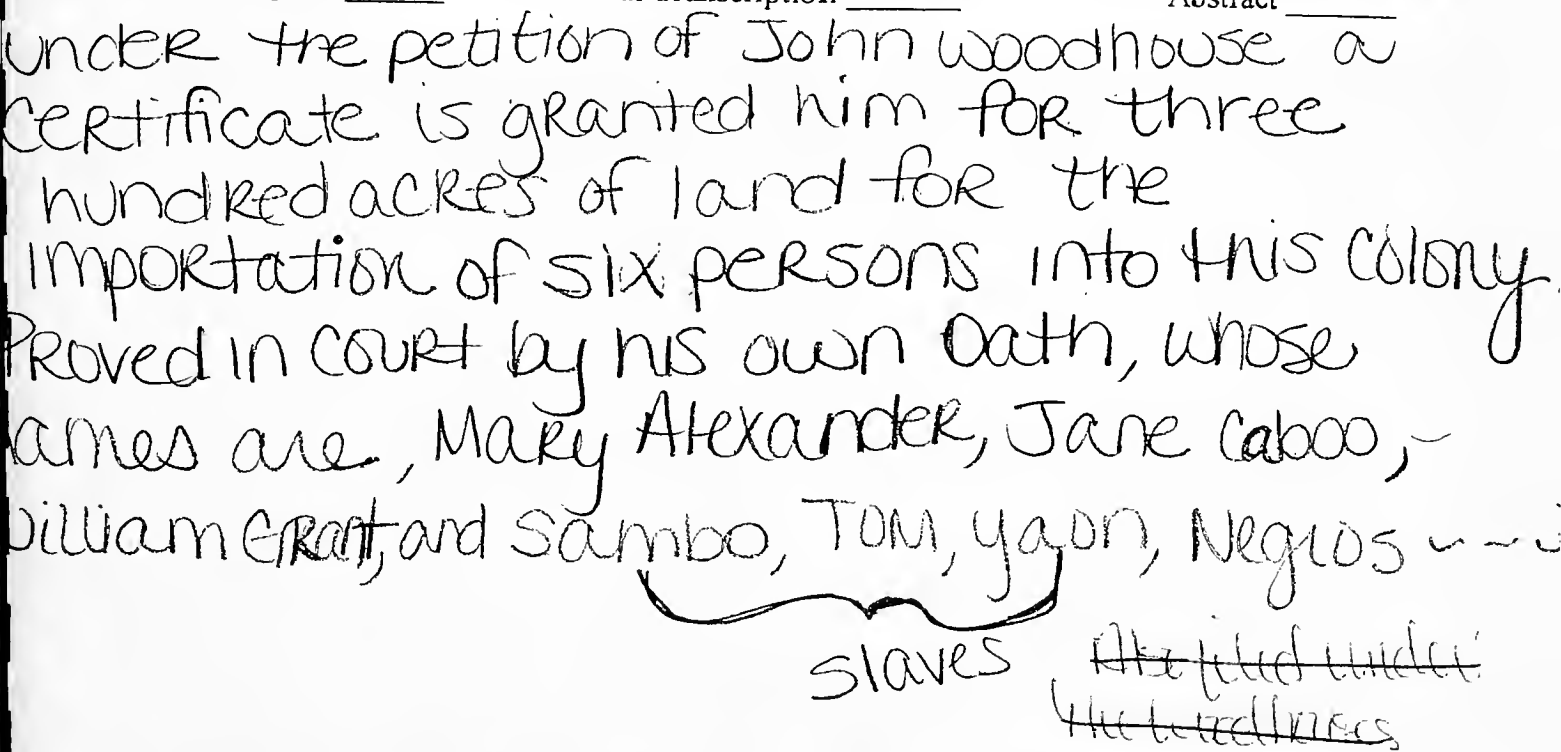 Abstract
Under the petition of John Woodhouse a
certificate is granted him for three
hundred acres of land for the
importation of six persons into this colony.
Proved in court by his own Oath, whose
names are, Mary Alexander, Jane Caboo,
William Grant, and Sambo, Tom, yaon, Negros
slaves